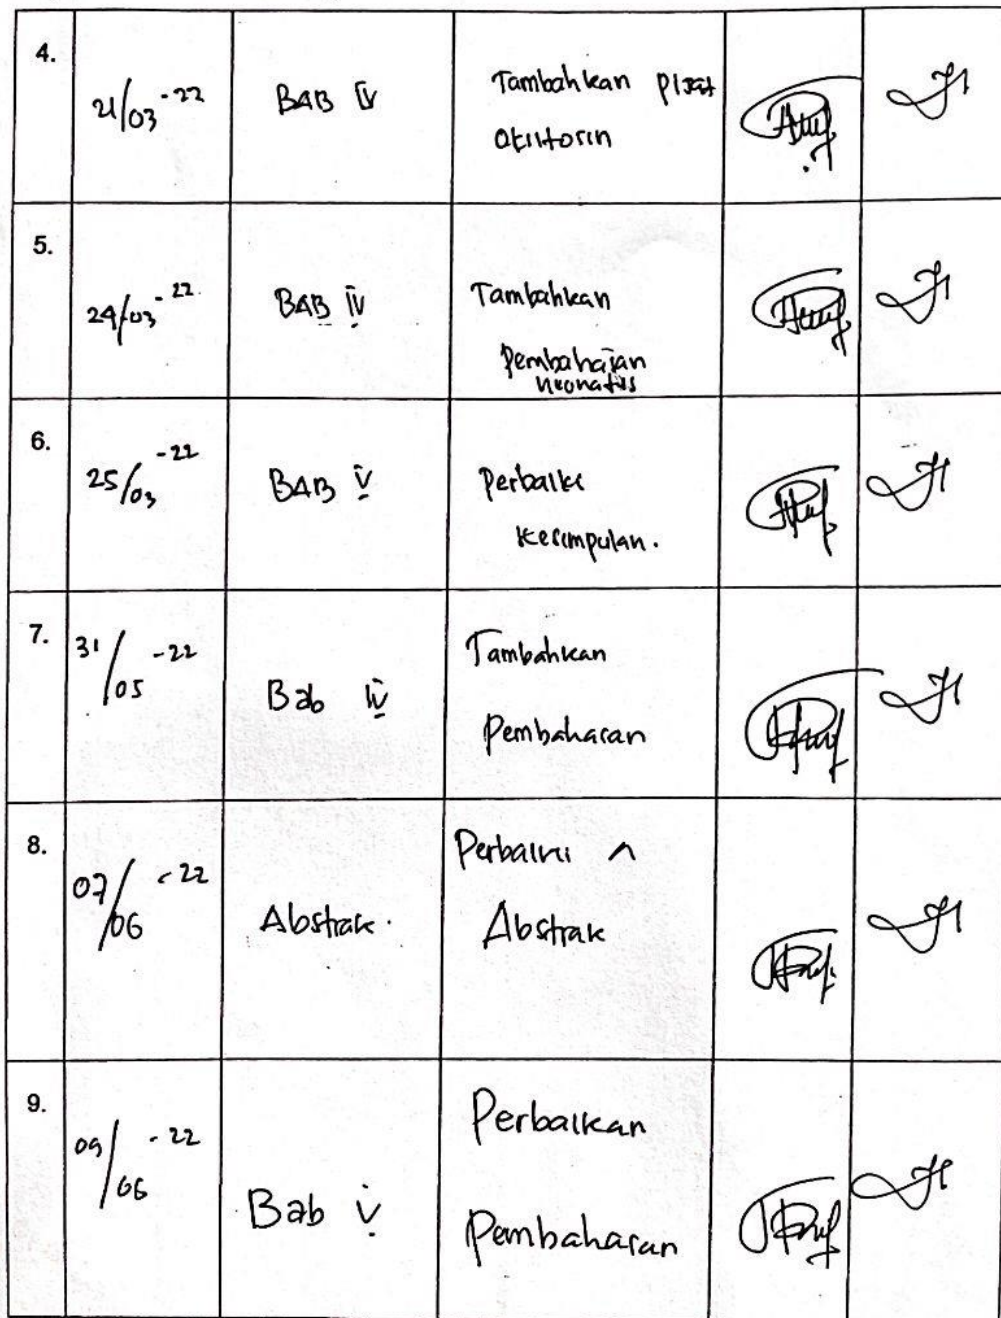 4.
21/03 -22
BAB IV
Tambahkan pijat
Oksitosin
5.
24/03 -22
BAB IV
Tambahkan
Pembahasan
neonatus
6.
25/03 -22
BAB V
Perbaiki
Kesimpulan.
7.
31/05 -22
Bab IV
Tambahkan
Pembahasan
8.
07/06 -22
Abstrak.
Perbaiki
Abstrak
9.
09/06 -22
Bab V
Perbaikan
Pembahasan